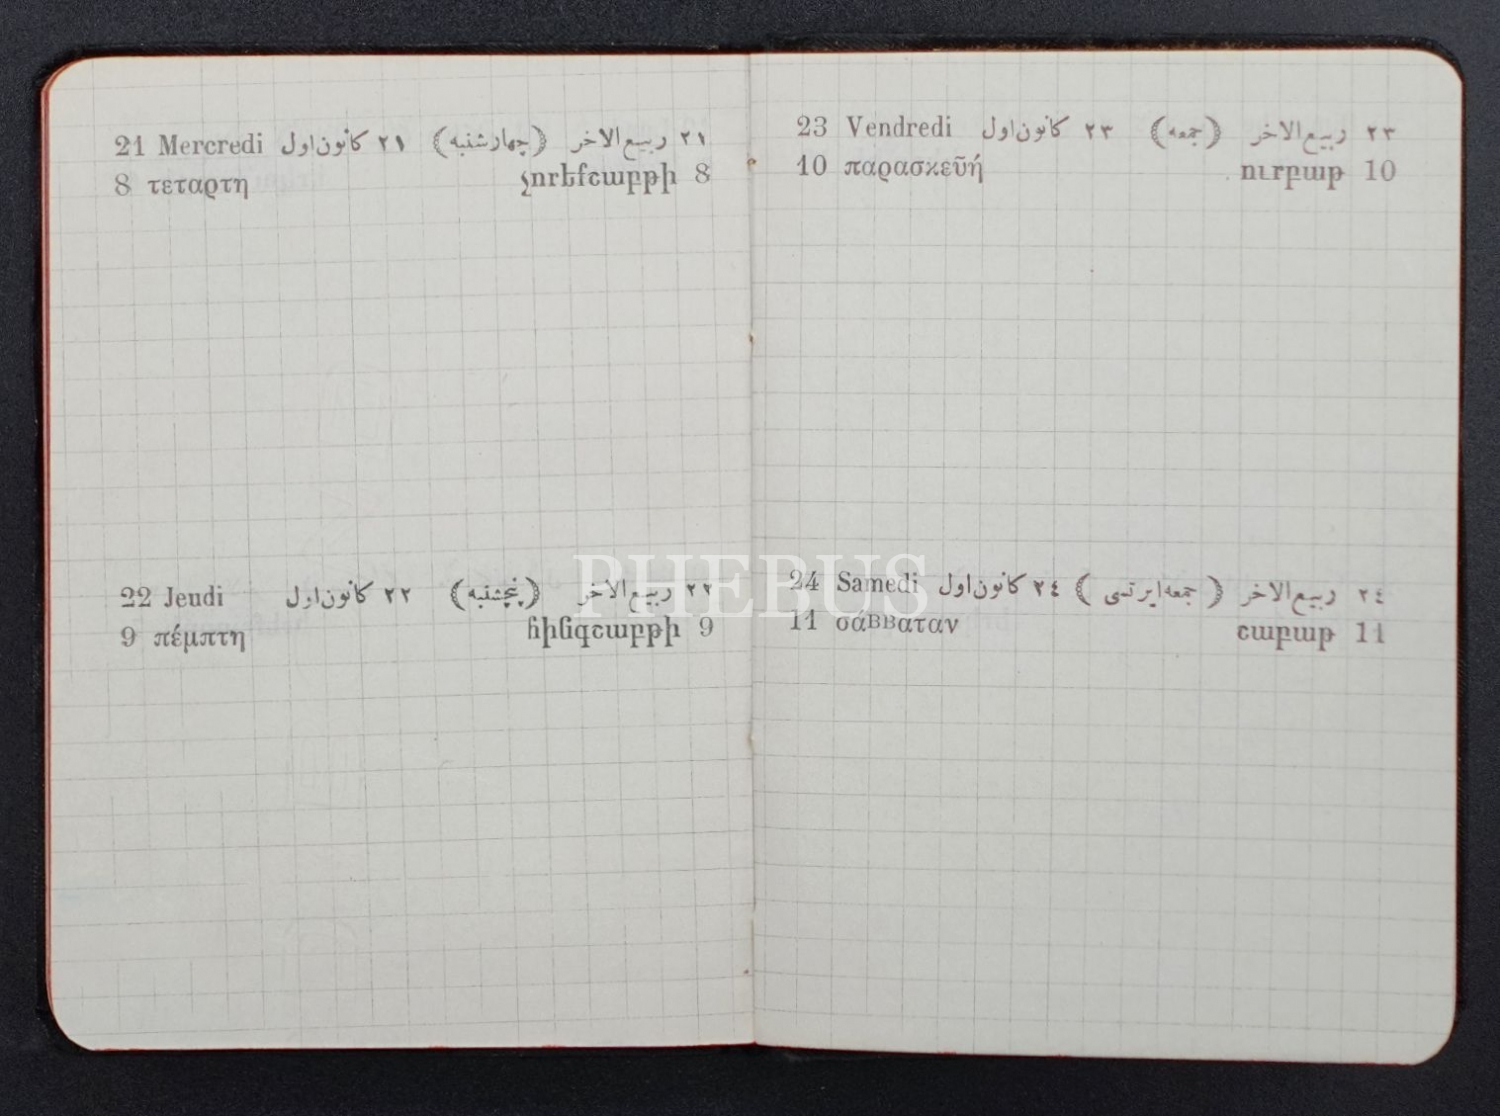 21 Mercredi ٢١ كانون اول (چهارشنبه) ٢١ ربيع الاخر
8 τεταρτη չորեքշաբթի 8
22 Jeudi ٢٢ كانون اول (پنجشنبه) ٢٢ ربيع الاخر
9 πέμπτη հինգշաբթի 9
23 Vendredi ٢٣ كانون اول (جمعه) ٢٣ ربيع الاخر
10 παρασκεῦή ուրբաթ 10
24 Samedi ٢٤ كانون اول (جمعه ايرتسى) ٢٤ ربيع الاخر
11 σάββαταν շաբաթ 11
PHEBUS